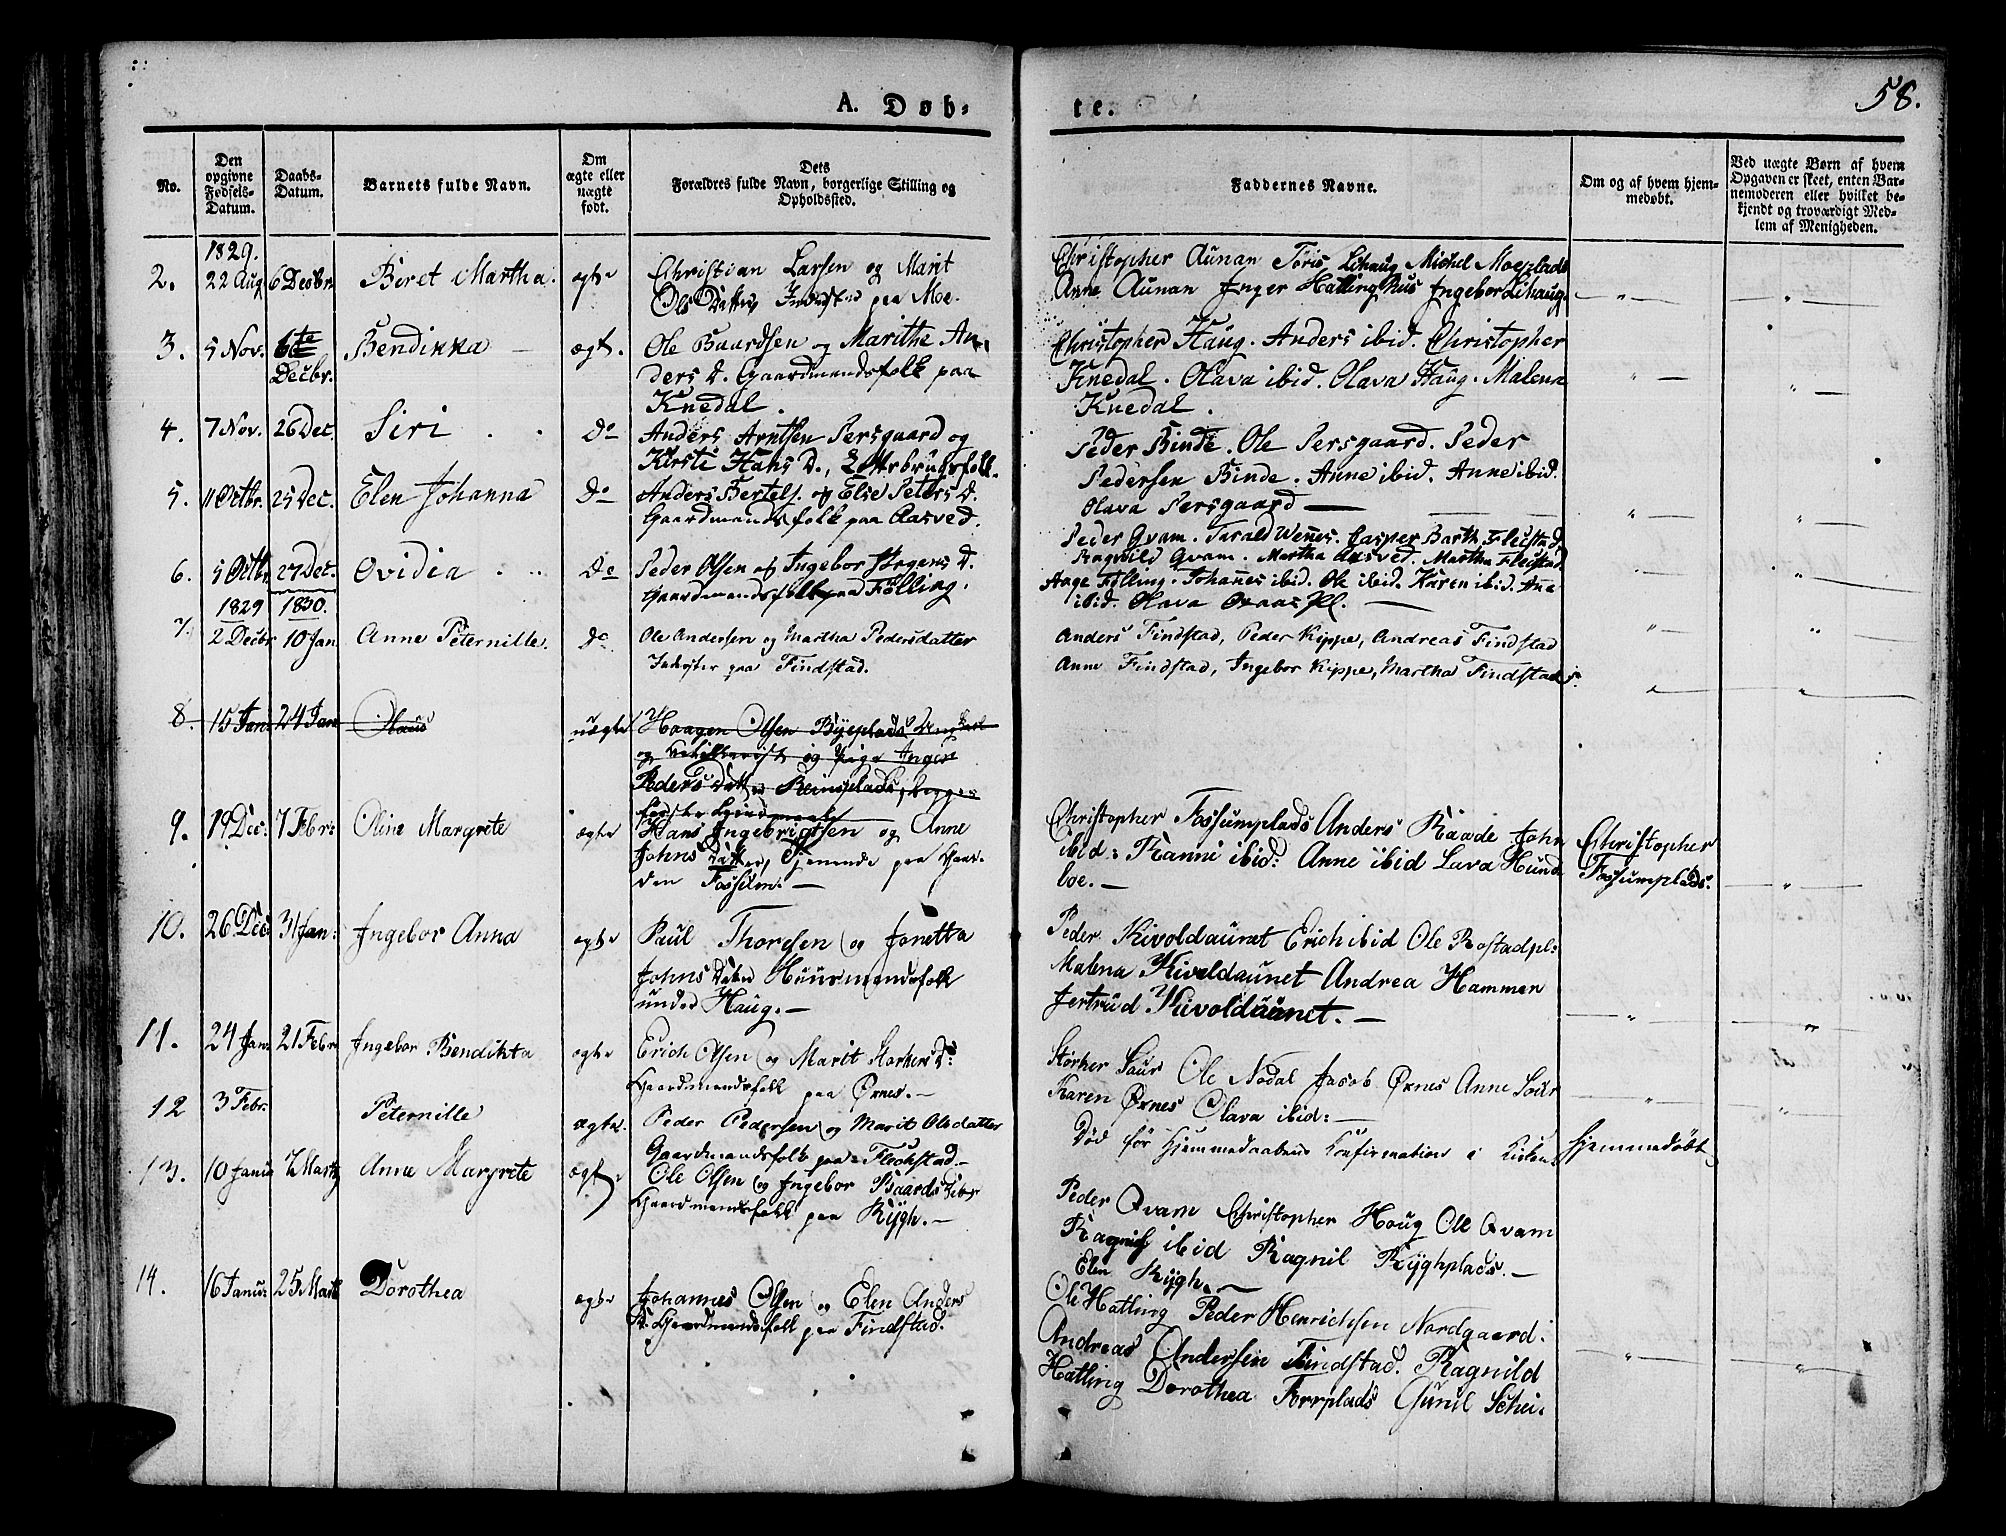 58.
A. Døb-
te.
No.
Den opgivne Fødsels-Datum.
Daabs-Datum.
Barnets fulde Navn.
Om ægte eller uægte født.
Dets Forældres fulde Navn, borgerlige Stilling og Opholdssted.
Faddernes Navne.
Om og af hvem hjem-medøbt.
Ved uægte Børn af hvem Opgaven er skeet, enten Bar-nemoderen eller hvilket be-kjendt og troværdigt Med-lem af Menigheden.
1829.
2. 22 Aug 6 Decbr. Beret Martha. ægte Christian Larsen og Marit
Ols Datter Inderster paa Moe.
Christopher Aunan Töris Lihaug Michel Moeplads
Anne Aunan Inger Hallinghus Ingebor Lihaug.
3. 5 Nov. 6te Decbr. Bendikka ægt. Ole Baardsen og Marithe An-
ders D. Gaardmandsfolk paa
Knedal.
Christopher Haug. Anders ibid. Christopher
Knedal. Olava ibid. Olava Haug. Malena
Knedal.
4. 7 Nov. 26 Dec. Siri Do Anders Arntsen Persgaard og
Kirsti Hans D.,
Peder Binde. Ole Persgaard. Peder
Pedersen Binde. Anne ibid. Anne ibid.
Olava Persgaard
5. 11 Octbr. 25 Dec. Elen Johanna Do Anders Bertels. og Else Peters D.
Gaardmandsfolk paa Aasved.
Peder Gvam. Tarald Wennes. Casper Barth Fleistad
Ragnild Gvam. Martha Aasved. Martha Fleistad
6. 5 Octbr. 27 Dec. Ovidia Do Peder Olsen og Ingebor Jörgens D.
Gaardmandsfolk paa Fölling.
Aage Fölling. Johannes ibid. Ole ibid. Karen ibid. Ane
ibid. Olava Pl.
1829 1830.
7. 2 Decbr. 10 Jan Anne Peternille. Do Ole Andersen og Martha Pedersdatter
Inderster paa Findstad.
Anders Findstad, Peder Kippe, Andreas Findstad
Anne Findstad, Ingebor Kippe, Martha Findstad
8. 15 Jan: 24 Jan Olaus uægte Haagen Olsen Byeplads Ung Karl
og Pige Inger
Peders Datter Reinsplads, begge

9. 19 Dec: 7 Febr: Oline Margrete ægte Hans Ingebrigtsen og Anne
Johns Datter, Tjenende paa Gaar-
den Fossum.
Christopher Fossumplads Anders Raade John
ibid: Ranni ibid: Anne ibid Lava Hund
boe.
Christopher Fossumplads.
10. 26 Dec: 31 Jan: Ingebor Anna ægte Paul Thorsen og Jonetta
Johns Datter Huusmandsfolk
under Haug.
Peder Kivoldaunet Erich ibid Ole Rostadpl:
Malena Kivoldaunet Andrea Hammer
Jertrud Kivoldaunet.
11. 24 Jan: 21 Febr Ingebor Bendikta ægte Erich Olsen og Marit Størkers D:
Gaardmandsfolk paa Ørnes.
Størker Saur Ole Nødal Jacob Øxnes Anne Saur
Karen Øxnes Olava ibid:
12 3 Febr. Peternille ægte. Peder Pedersen og Marit Olsdatter
Gaardmandsfolk paa Flechstad.
Død før Hjemmedaabens Konfirmation i Kirken.
Hjemmedøbt
13. 10 Janu: 7 Marts Anne Margrete ægte Ole Olsen og Ingebor Baards Datter
Gaardmandsfolk paa Rygh.
Peder Qvam Christopher Houg Ole Qvam
Ragnil ibid Ragnil Ryghplads.
Elen Rygh.
14. 16 Janu: 25 Marts Dorothea ægte Johannes Olsen og Elen Anders
D. Gaardmandsfolk paa Findstad.
Ole Hatling Peder Henrichsen Nordgaard.
Andreas Andersen Findstad. Ragnild
Hatling Dorothea Forrplads Gunil Schei.